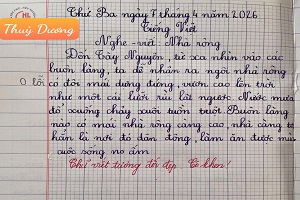 Thuỳ Dương
Thứ Ba ngày 7 tháng 4 năm 2026
Tiếng Việt
Nghe - viết: Nhà rông
Đến Tây Nguyên, từ xa nhìn vào các
buôn làng, ta dễ nhận ra ngôi nhà rông
0 lỗi
có đôi mái dựng đứng, vươn cao lên trời
như một cái lưỡi rìu lật ngược. Nước mưa
đổ xuống chảy xuôi tuồn tuột. Buôn làng
nào có mái nhà rông càng cao, nhà càng to
hẳn là nơi đó dân đông, làm ăn được mùa
cuộc sống no ấm
Chữ viết tương đối đẹp. Cô khen!